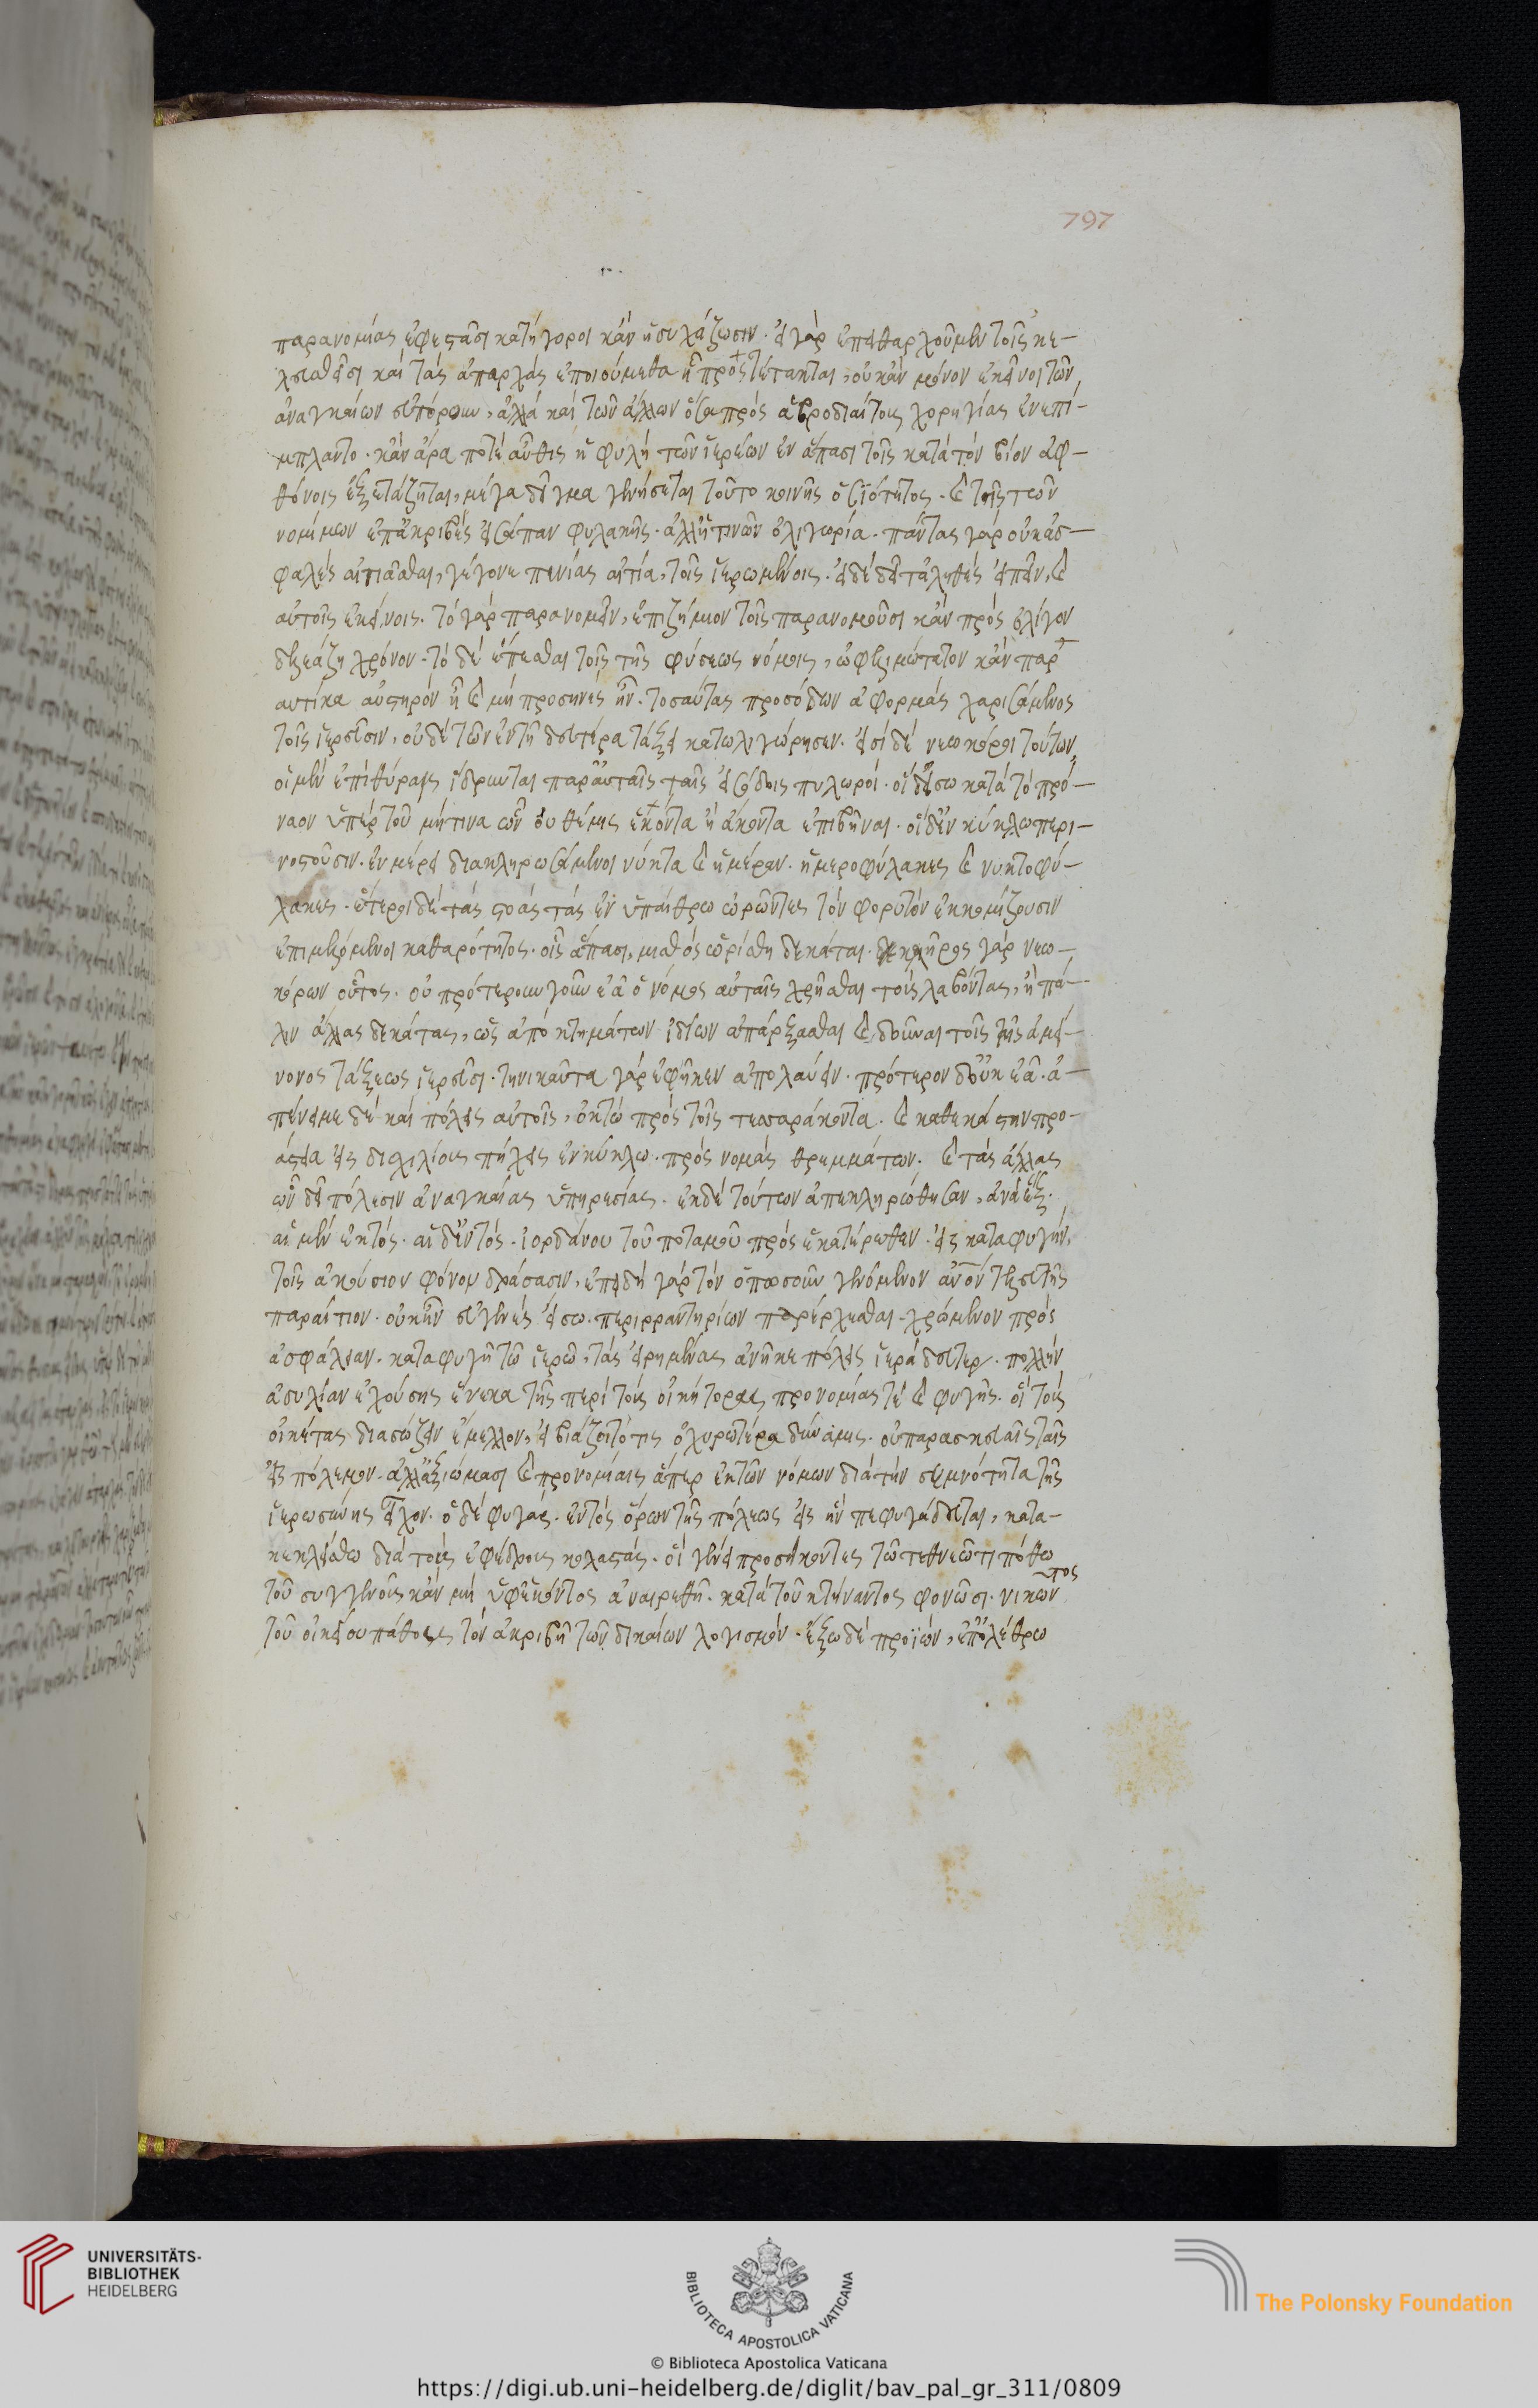 797
παρανομίας ἐφεστᾶσι κατήγοροι κἂν ἡσυχάζωσιν· εἰ γὰρ ἐπειθαρχοῦμεν τοῖς κε-
λευσθεῖσι καὶ τὰς ἀπαρχὰς ἐποιούμεθα ᾗ προστέτακται, οὐκ ἂν μόνον ἐκεῖνοι τῶν
ἀναγκαίων εὐπόρουν, ἀλλὰ καὶ τῶν ἄλλων ὅσα πρὸς ἁβροδιαίτους χορηγίας ἐνεπί-
μπλαντο· κἂν ἄρα ποτὲ αὖθις ἡ φυλὴ τῶν ἱερέων ἐν ἅπασι τοῖς κατὰ τὸν βίον ἀφ-
θόνοις ἐξετάζηται, μέγα δεῖγμα γενήσεται τοῦτο κοινῆς ὁσιότητος· καὶ τῆς τῶν
νομίμων ἐπ' ἀκριβὲς εἰσάπαν φυλακῆς· ἀλλ' ἥ τινων ὀλιγωρία· πάντας γὰρ οὐκ ἀσ-
φαλὲς αἰτιᾶσθαι, γέγονε πενίας αἰτία, τοῖς ἱερωμένοις· εἰ δὲ δεῖ τἀληθὲς εἰπεῖν, καὶ
αὐτοῖς ἐκείνοις· τὸ γὰρ παρανομεῖν, ἐπιζήμιον τοῖς παρανομοῦσι κἂν πρὸς ὀλίγον
δελεάζῃ χρόνον· τὸ δὲ ἕπεσθαι τοῖς τῆς φύσεως νόμοις, ὠφελιμώτατον κἂν παρ
αυτίκα αὐστηρὸν ᾖ καὶ μὴ προσηνὲς ἦν· τοσαύτας προσόδων ἀφορμὰς χαρισάμενος
τοῖς ἱερεῦσιν, οὐδὲ τῶν ἐν τῇ δευτέρᾳ τάξει κατωλιγώρησεν· εἰσὶ δὲ νεωκόροι τούτων,
οἱ μὲν ἐπὶ θύραις ἵδρυνται παρ' αὐταῖς ταῖς εἰσόδοις πυλωροί· οἱ δ' εἴσω κατὰ τὸ πρό-
ναον ὑπὲρ τοῦ μή τινα ὧν οὐ θέμις ἑκόντα ἢ ἄκοντα ἐπιβῆναι· οἱ δ' ἐν κύκλω περι-
νοστοῦσιν· ἐν μέρει διακληρωσάμενοι νύκτα καὶ ἡμέραν· ἡμεροφύλακες καὶ νυκτοφύ-
λακες· ἕτεροι δὲ τὰς στοὰς τὰς ἐν ὑπαίθρω ὡρῶντες τὸν φορυτὸν ἐκκομίζουσιν
ἐπιμελόμενοι καθαρότητος· οἷς ἅπασι, μισθὸς ὡρίσθη δεκάται· κλῆρος γὰρ νεω-
κόρων οὗτος· οὐ πρότερον γοῦν ἐᾷ ὁ νόμος αὐταῖς χρῆσθαι τοὺς λαβόντας, ἢ πά-
λιν ἄλλας δεκάτας, ὡς ἀπὸ κτημάτων ἰδίων ἀπάρξασθαι καὶ δοῦναι τοῖς τῆς ἀμεί-
νονος τάξεως ἱερεῦσι· τηνικαῦτα γὰρ ἐφῆκεν ἀπολαύειν· πρότερον δ' οὐκ ἐᾷ· ἀ-
πένειμε δὲ καὶ πόλεις αὐτοῖς, ὀκτὼ πρὸς τοῖς τεσσαράκοντα· καὶ καθ' ἑκάστην προ-
άστεια εἰς δισχιλίους πήχεις ἐν κύκλω· πρὸς νομὰς θρεμμάτων· καὶ τὰς ἄλλας
ὧν δεῖ πόλεσιν ἀναγκαίας ὑπηρεσίας· ἐκ δὲ τούτων ἀπεκληρώθησαν, ἀνὰ ἓξ·
αἱ μὲν ἐκτός· αἱ δ' ἐντός· ἰορδάνου τοῦ ποταμοῦ πρὸς ἑκατέρωθεν· εἰς καταφυγὴν,
τοῖς ἀκούσιον φόνον δράσασιν, ἐπειδὴ γὰρ τὸν ὁπωσοῦν γενόμενον ἀνθρώπῳ τελευτῆς
παραίτιον· οὐκ ἦν εὐαγὲς εἴσω· περιρραντηρίων παρέρχεσθαι· χρώμενον πρὸς
ἀσφάλειαν· καταφυγῇ τῶ ἱερῶ, τὰς εἰρημένας ἀνῆκε πόλεις ἱερὰ δεύτερ· πολλὴν
ἀσυλίαν ἐχούσης ἕνεκα τῆς περὶ τοὺς οἰκήτορας προνομίας τὲ καὶ φυγῆς· οἳ τοὺς
οἰκέτας διασώζειν ἔμελλον, εἰ βιάζοιτό τις ὀχυρωτέρα δύναμις· οὐ παρασκευαῖς ταῖς
εἰς πόλεμον· ἀλλ' ἀξιώμασι καὶ προνομίαις ἅπερ ἐκ τῶν νόμων διὰ τὴν σεμνότητα τῆς
ἱερωσύνης εἶχον· ὁ δὲ φυγὰς· ἐντὸς ὅρων τῆς πόλεως εἰς ἣν πεφυγάδευται, κατα-
κεκλείσθω διὰ τοὺς ἐφέδρους κολαστάς· οἳ γένει προσήκοντες τῶ τεθνεῶτι πόθω
τοῦ συγγενοῦς κἂν μὴ ὑφ' ἑκόντος ἀναιρεθῇ· κατὰ τοῦ κτείναντος φονῶσι· νικῶντος
τοῦ οἰκείου πάθους τὸν ἀκριβῆ τῶν δικαίων λογισμόν· ἔξω δὲ προϊὼν, ἐπ' ὀλέθρω
UNIVERSITÄTS-
BIBLIOTHEK
HEIDELBERG
BIBLIOTECA APOSTOLICA VATICANA
The Polonsky Foundation
© Biblioteca Apostolica Vaticana
https://digi.ub.uni-heidelberg.de/diglit/bav_pal_gr_311/0809